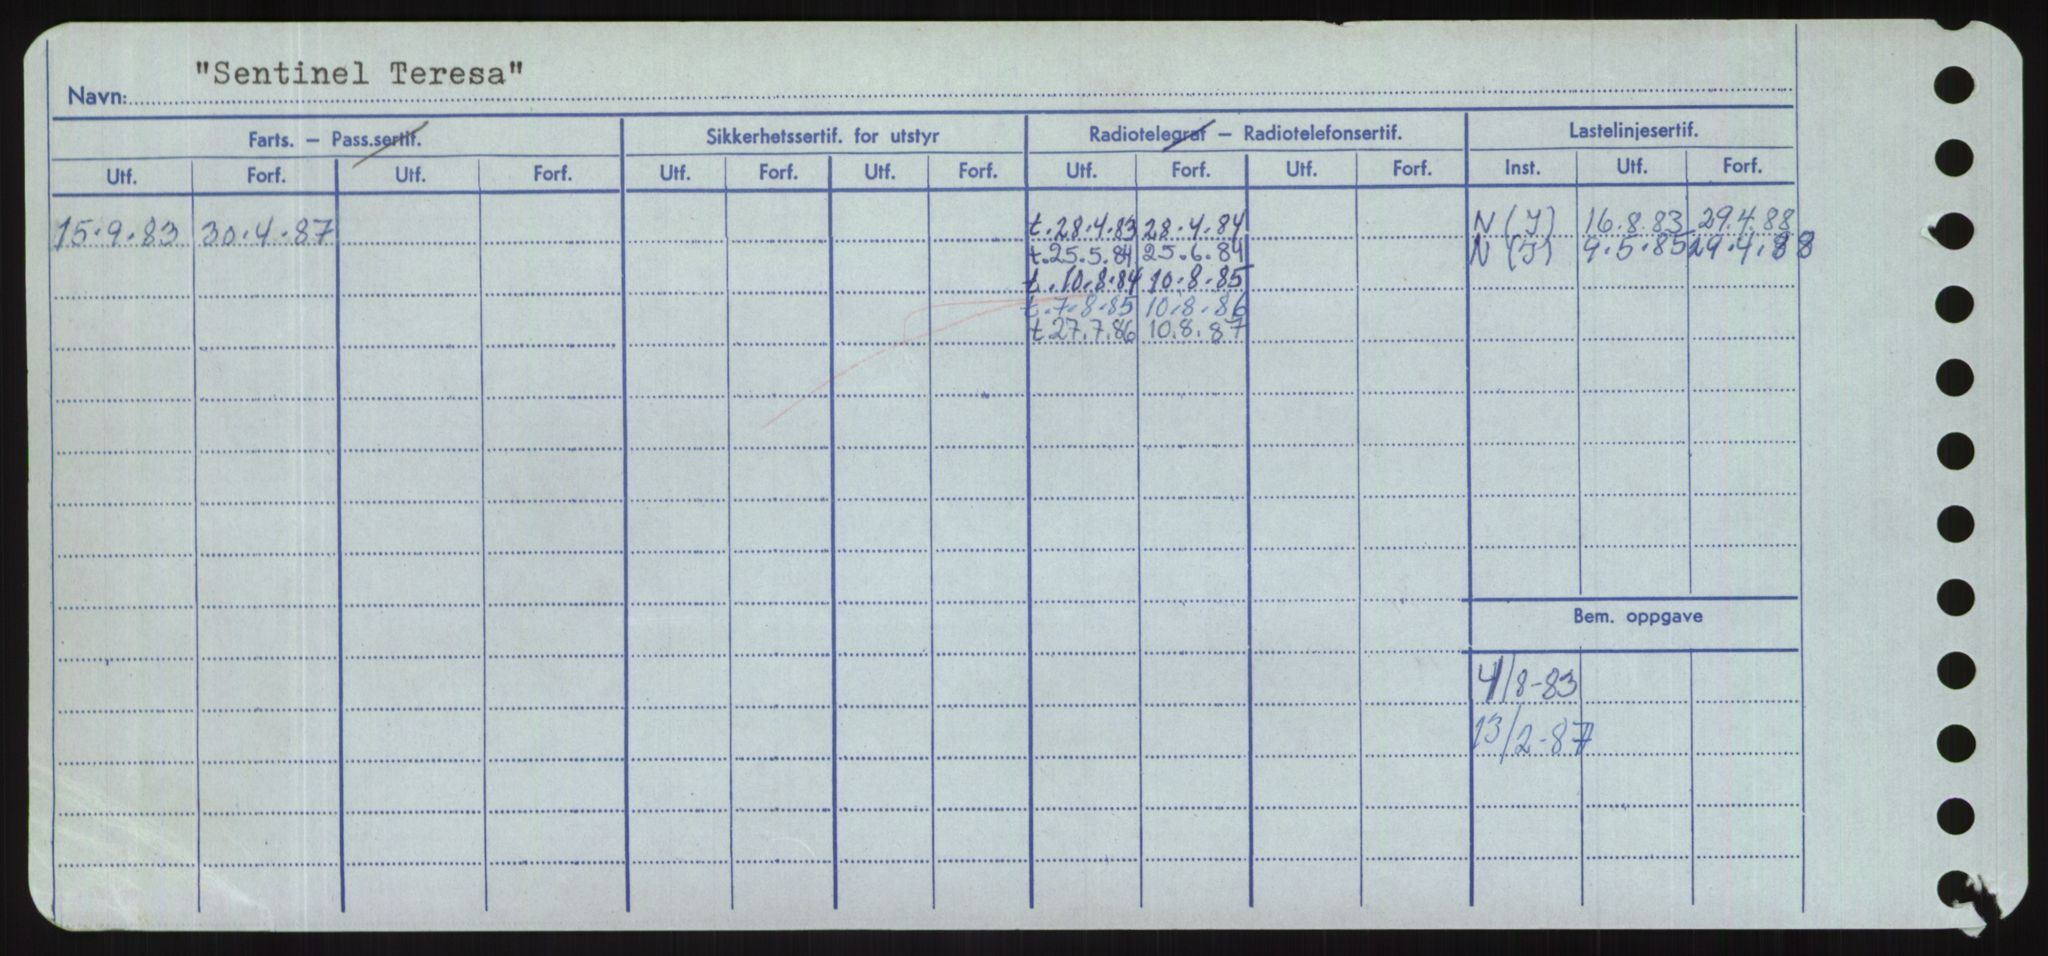 Navn: "Sentinel Teresa"
Farts. – Pass.sertif. Sikkerhetssertif. for utstyr Radiotelegraf – Radiotelefonsertif. Lastelinjesertif.
Utf. Forf. Utf. Forf. Utf. Forf. Utf. Forf. Utf. Forf. Utf. Forf. Inst. Utf. Forf.
15.9.83 30.4.87 t.28.4.83 28.4.84 N (J) 16.8.83 29.4.88
t.25.5.84 25.6.84 N (J) 9.5.85 29.4.88
t.10.8.84 10.8.85
t.7.8.85 10.8.86
t.27.7.86 10.8.87
Bem. oppgave
4/8-83
13/2-87